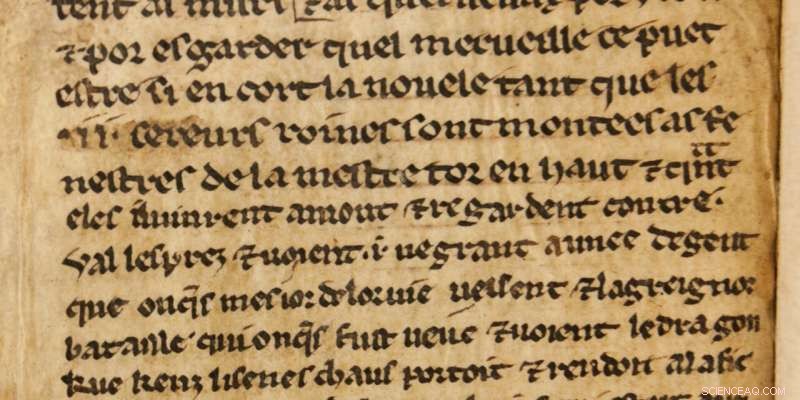 ⁊ por esgarder quel merueille ce puet
estre si en cort la nouele tant que les
·ii· sereurs roines sont montees as fe
nestres de la mestre tor en haut ⁊ qͣnt
eles uinrent amont ⁊ regardent contre
ual les prez ⁊ uoient ·i· ne grant gent
que onq̄s mes ior de lor uie ueissent ⁊ la greignor
bataille qui onq̄s fust ueue ⁊ uoient le dragon
kue kenz li senes chaus portoit ⁊
SCIENCEAQ.COM